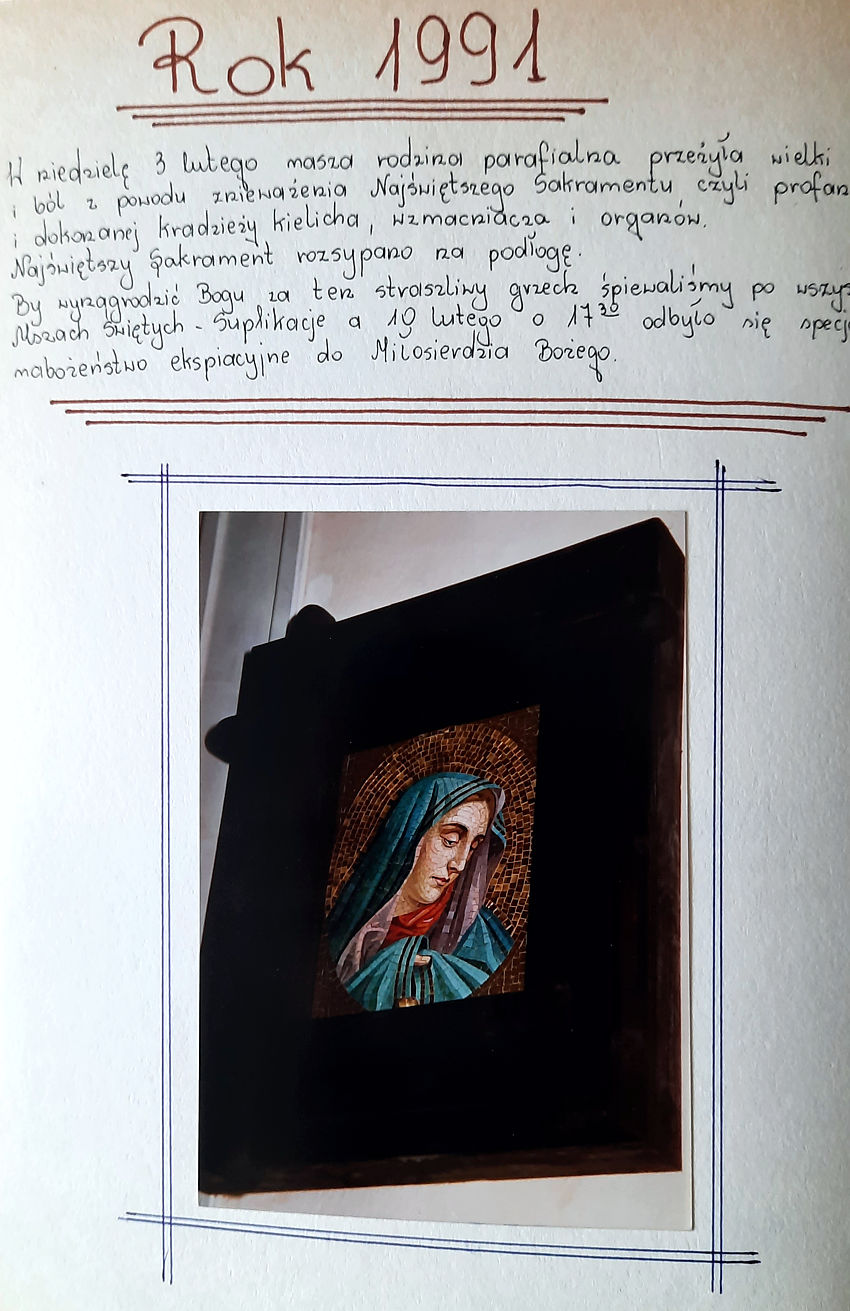 Rok 1991
W niedzielę 3 lutego nasza rodzina parafialna przeżyła wielki
i ból z powodu znieważenia Najświętszego Sakramentu, czyli profan
i dokonanej kradzieży kielicha, wzmacniacza i organów.
Najświętszy Sakrament rozsypano na podłogę.
By wynagrodzić Bogu za ten straszliwy grzech śpiewaliśmy po wszys
Mszach Świętych - Suplikacje a 19 lutego o 17³⁰ odbyło się specja
nabożeństwo ekspiacyjne do Miłosierdzia Bożego.